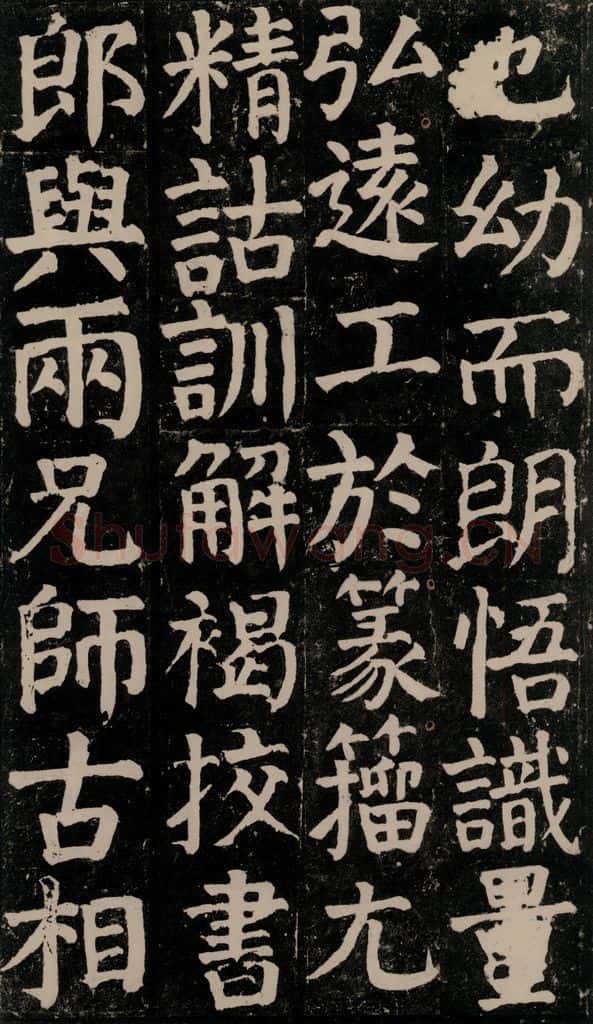 也幼而朗悟識量
弘遠工於篆籀尢
精詁訓解褐挍書
郎與兩兄師古相
Shufawang.CN